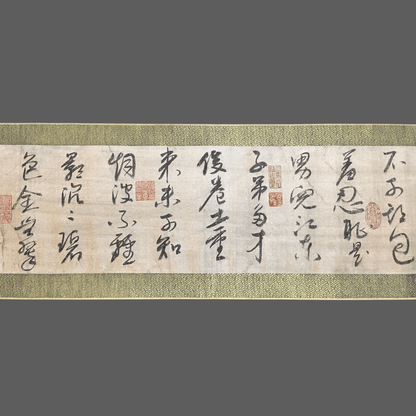 不可期包
羞忍耻是
男兒江東
子弟多才
俊卷土重
來未可知
烟波不動
影沉〻碧
色全無翠